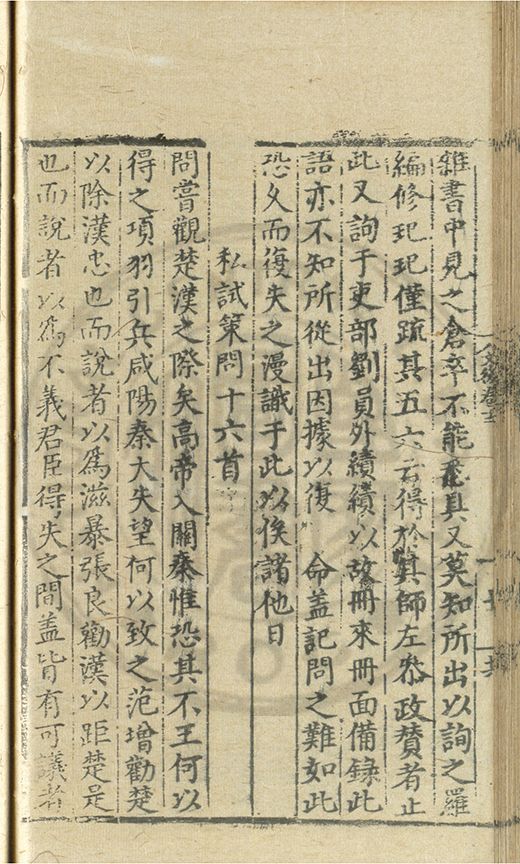 雜書中見之倉卒不能悉具又莫知所出以詢之羅
編修玘玘僅疏其五六云得於其師左叅政賛者止
此又詢于吏部劉員外績績以故冊來冊面備録此
語亦不知所從出因據以復 命盖記問之難如此
恐久而復失之漫識于此以俟諸他日
私試策問十六首
問嘗觀楚漢之際矣高帝入關秦惟恐其不王何以
得之項羽引兵咸陽秦大失望何以致之范增勸楚
以除漢忠也而說者以爲滋暴張良勸漢以距楚是
也而說者以爲不義君臣得失之間盖皆有可議者